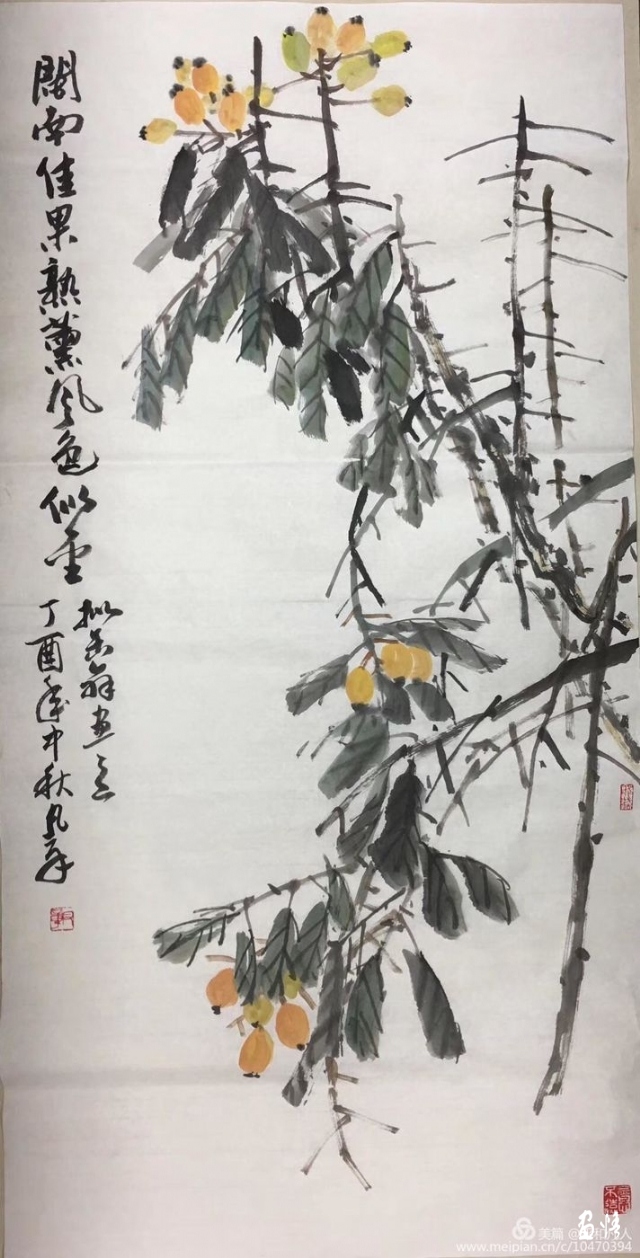 閩南佳果熟薰风色似金
拟缶翁画意
丁酉年中秋凡
美篇
www.meipian.cn/c/10470394